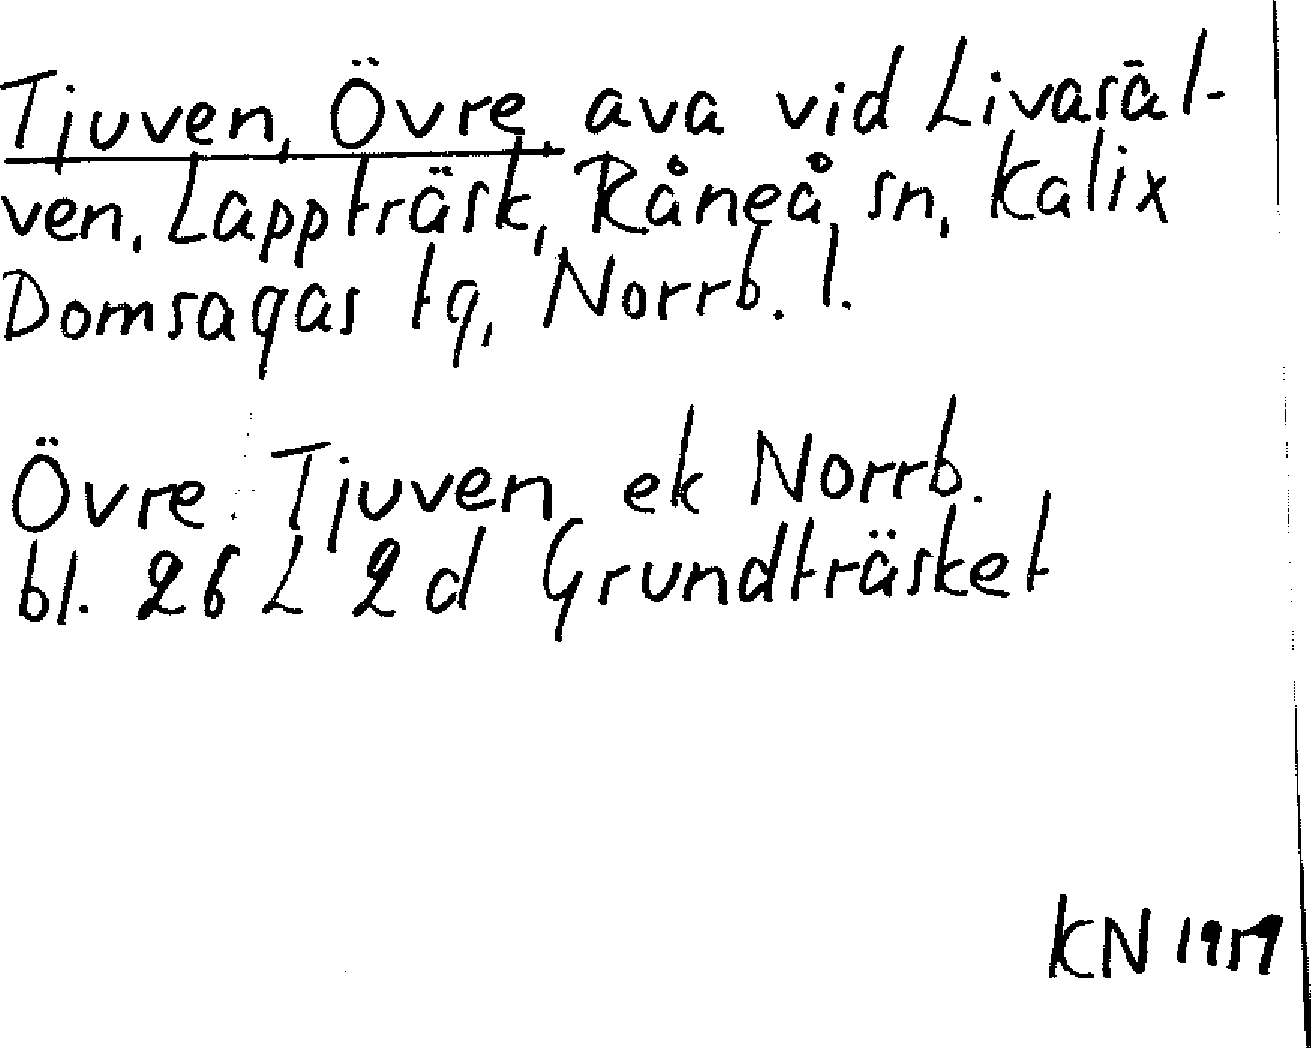 Tjuven, Övre, ava vid Livasäl-
ven, Lappträsk, Råneå sn, Kalix
Domsagas tg, Norrb. l.
Övre Tjuven ek Norrb.
bl. 26 L 2 d Grundträsket
KN